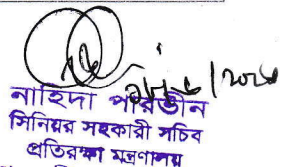 নাহিদা পারভীন
সিনিয়র সহকারী সচিব
প্রতিরক্ষা মন্ত্রণালয়